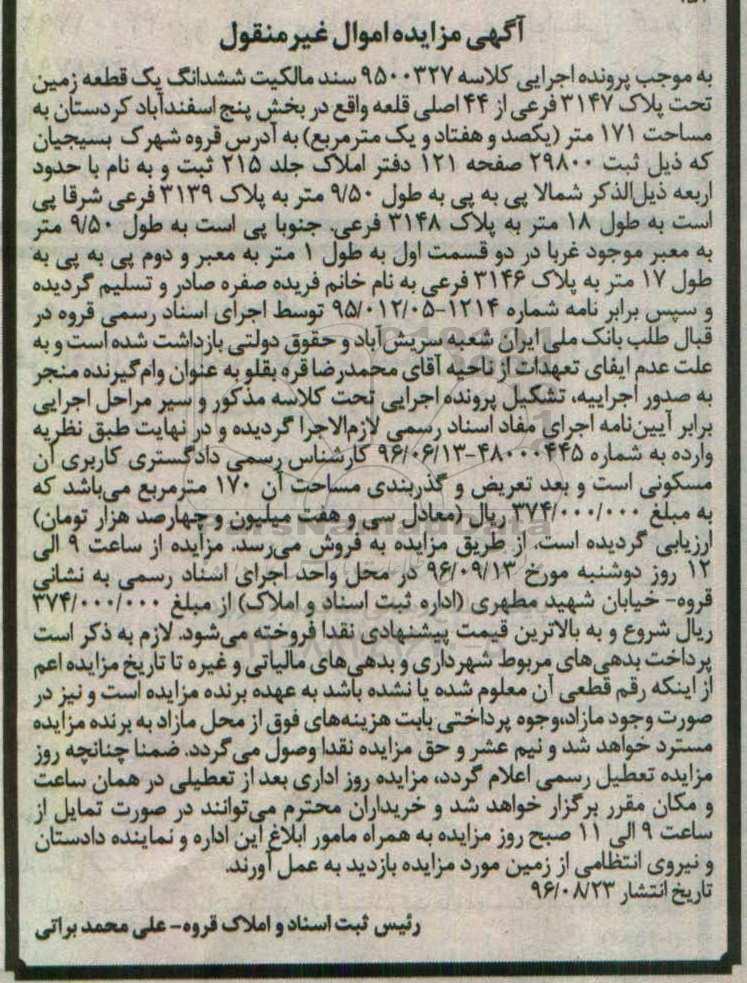 آگهی مزایده اموال غیرمنقول
به موجب پرونده اجرایی کلاسه ۹۵۰۰۳۲۷ سند مالکیت ششدانگ یک قطعه زمین
تحت پلاک ۳۱۴۷ فرعی از ۴۴ اصلی قلعه واقع در بخش پنج اسفندآباد کردستان به
مساحت ۱۷۱ متر (یکصد و هفتاد و یک مترمربع) به آدرس قروه شهرک بسیجیان
که ذیل ثبت ۲۹۸۰۰ صفحه ۱۲۱ دفتر املاک جلد ۲۱۵ ثبت و به نام با حدود
اربعه ذیل‌الذکر شمالا پی به پی به طول ۹/۵۰ متر به پلاک ۳۱۳۹ فرعی شرقا پی
است به طول ۱۸ متر به پلاک ۳۱۴۸ فرعی. جنوبا پی است به طول ۹/۵۰ متر
به معبر موجود غربا در دو قسمت اول به طول ۱ متر به معبر و دوم پی به پی به
طول ۱۷ متر به پلاک ۳۱۴۶ فرعی به نام خانم فریده صفره صادر و تسلیم گردیده
و سپس برابر نامه شماره ۱۲۱۴-۹۵/۰۱۲/۰۵ توسط اجرای اسناد رسمی قروه در
قبال طلب بانک ملی ایران شعبه سریش‌آباد و حقوق دولتی بازداشت شده است و به
علت عدم ایفای تعهدات از ناحیه آقای محمدرضا قره بقلو به عنوان وام‌گیرنده منجر
به صدور اجراییه، تشکیل پرونده اجرایی تحت کلاسه مذکور و سیر مراحل اجرایی
برابر آیین‌نامه اجرای مفاد اسناد رسمی لازم‌الاجرا گردیده و در نهایت طبق نظریه
وارده به شماره ۴۸۰۰۰۴۴۵-۹۶/۰۶/۱۳ کارشناس رسمی دادگستری کاربری آن
مسکونی است و بعد تعریض و گذربندی مساحت آن ۱۷۰ مترمربع می‌باشد که
به مبلغ ۳۷۴/۰۰۰/۰۰۰ ریال (معادل سی و هفت میلیون و چهارصد هزار تومان)
ارزیابی گردیده است. از طریق مزایده به فروش می‌رسد. مزایده از ساعت ۹ الی
۱۲ روز دوشنبه مورخ ۹۶/۰۹/۱۳ در محل واحد اجرای اسناد رسمی به نشانی
قروه- خیابان شهید مطهری (اداره ثبت اسناد و املاک) از مبلغ ۳۷۴/۰۰۰/۰۰۰
ریال شروع و به بالاترین قیمت پیشنهادی نقدا فروخته می‌شود. لازم به ذکر است
پرداخت بدهی‌های مربوط شهرداری و بدهی‌های مالیاتی و غیره تا تاریخ مزایده اعم
از اینکه رقم قطعی آن معلوم شده یا نشده باشد به عهده برنده مزایده است و نیز در
صورت وجود مازاد،وجوه پرداختی بابت هزینه‌های فوق از محل مازاد به برنده مزایده
مسترد خواهد شد و نیم عشر و حق مزایده نقدا وصول می‌گردد. ضمنا چنانچه روز
مزایده تعطیل رسمی اعلام گردد، مزایده روز اداری بعد از تعطیلی در همان ساعت
و مکان مقرر برگزار خواهد شد و خریداران محترم می‌توانند در صورت تمایل از
ساعت ۹ الی ۱۱ صبح روز مزایده به همراه مامور ابلاغ این اداره و نماینده دادستان
و نیروی انتظامی از زمین مورد مزایده بازدید به عمل آورند.
تاریخ انتشار ۹۶/۰۸/۲۳
رئیس ثبت اسناد و املاک قروه- علی محمد براتی